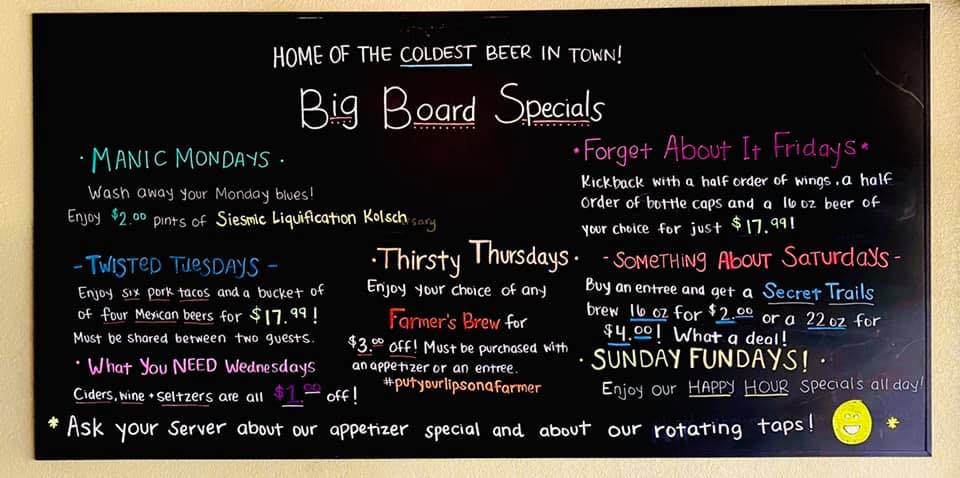 HOME OF THE COLDEST BEER IN TOWN!
Big Board Specials
· MANIC MONDAYS ·
Wash away your Monday blues!
Enjoy $2.00 pints of Siesmic Liquification Kolsch
- TWISTED TUESDAYS -
Enjoy six pork tacos and a bucket of
of four Mexican beers for $17.99!
Must be shared between two guests.
· What You NEED Wednesdays
Ciders, wine + seltzers are all $1.00 off!
· Thirsty Thursdays ·
Enjoy your choice of any
Farmer's Brew for
$3.00 off! Must be purchased with
an appetizer or an entree.
#putyourlipsonafarmer
* Forget About It Fridays *
Kickback with a half order of wings, a half
order of bottle caps and a 16 oz beer of
your choice for just $17.99!
- SOMETHING ABOUT SATURDAYS -
Buy an entree and get a Secret Trails
brew 16 oz for $2.00 or a 22 oz for
$4.00! What a deal!
· SUNDAY FUNDAYS! ·
Enjoy our HAPPY HOUR specials all day!
* Ask your server about our appetizer special and about our rotating taps! *